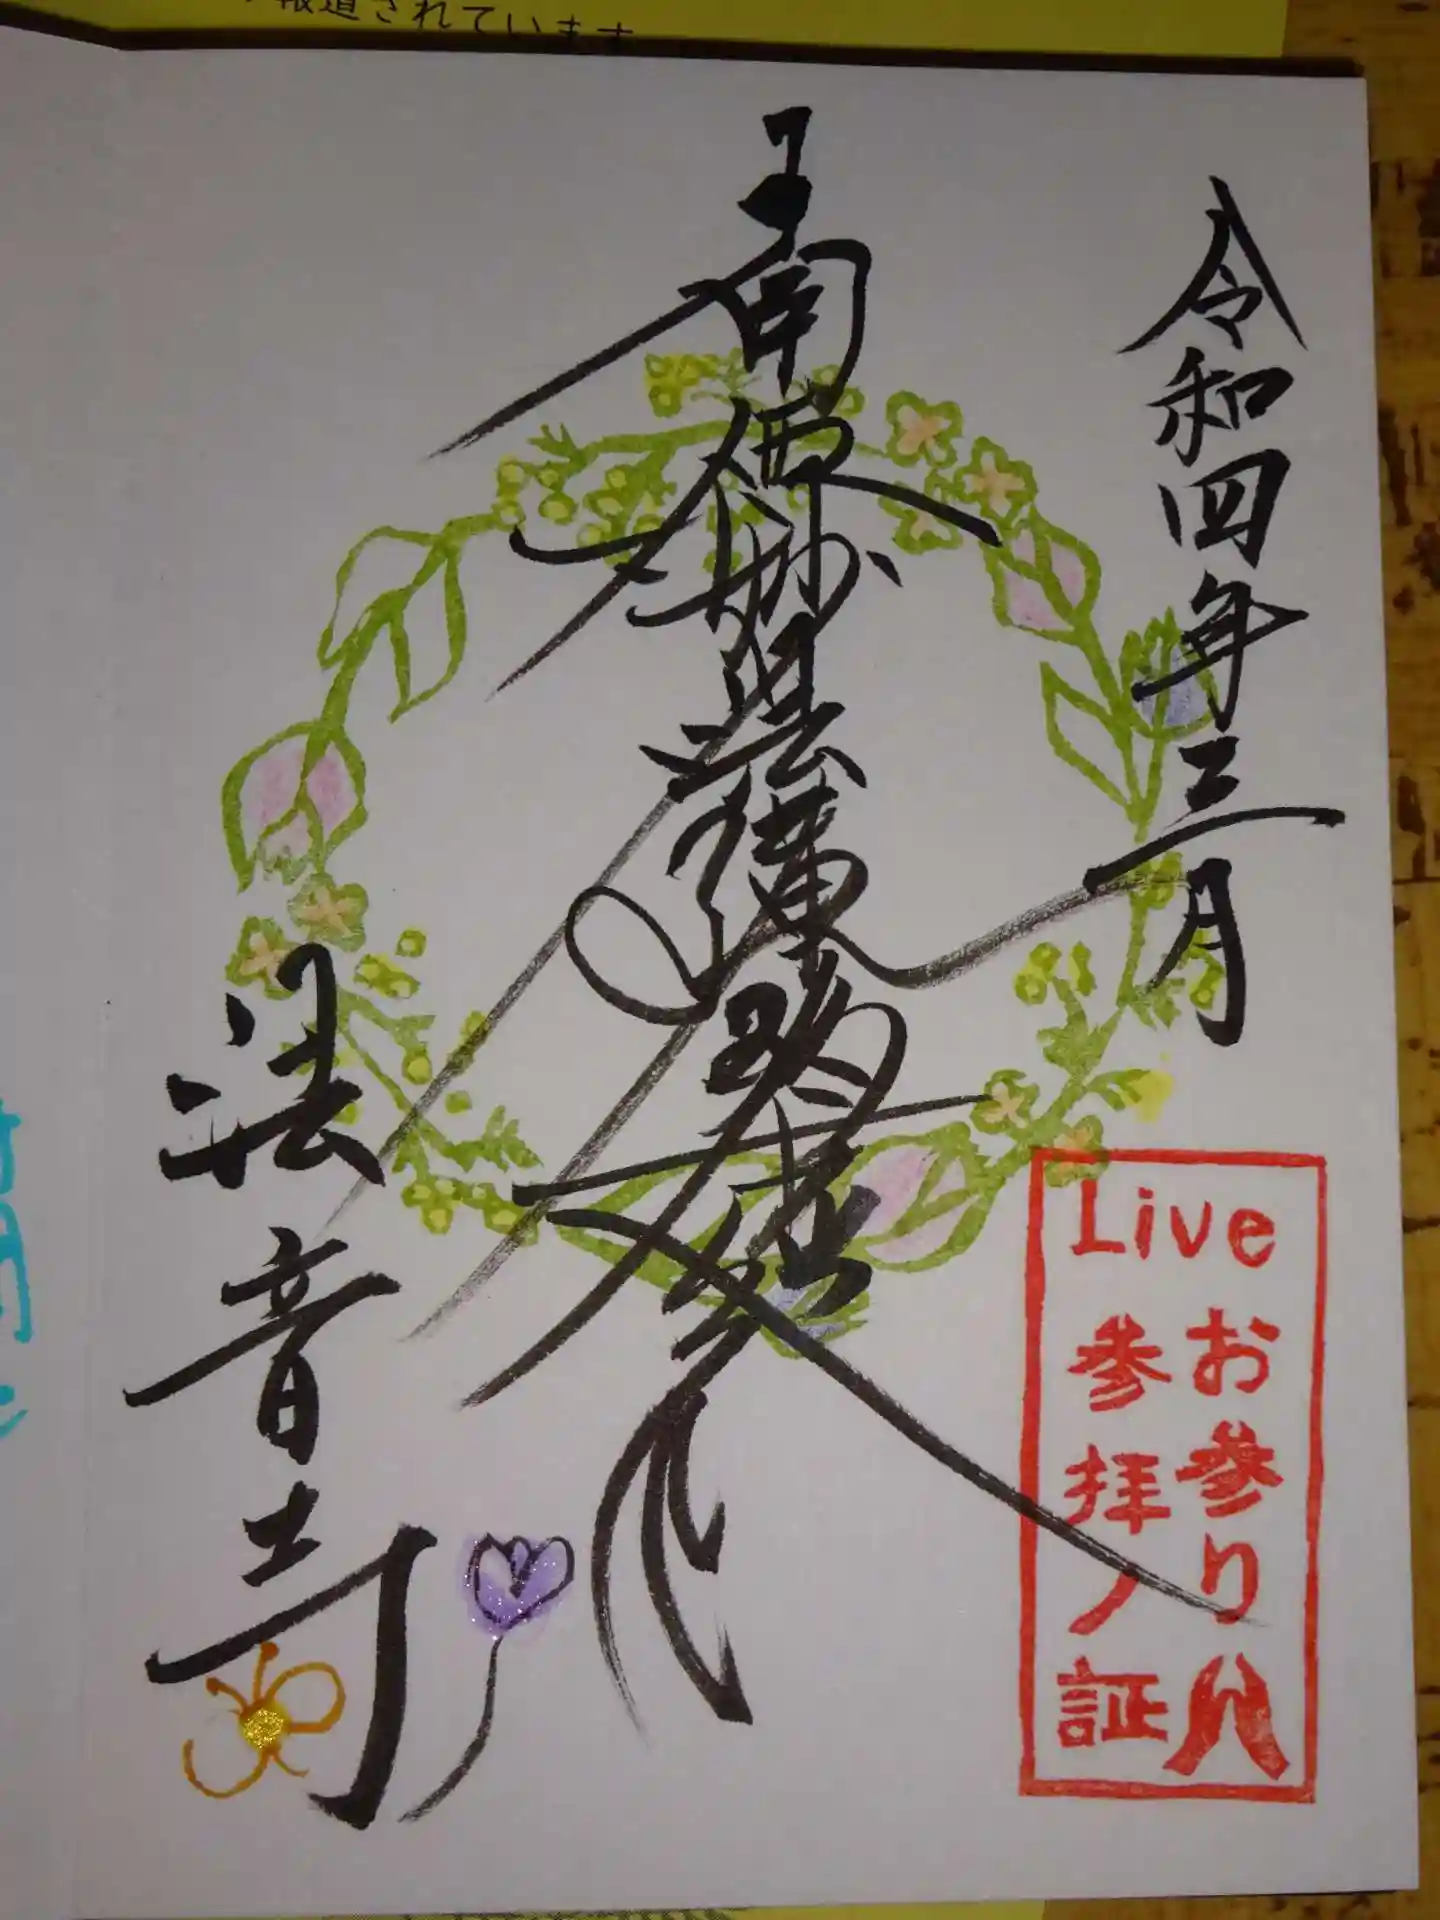 報道されています
令和四年三月
南無妙法蓮華経
法音寺
Live
お参り
参拝ノ証